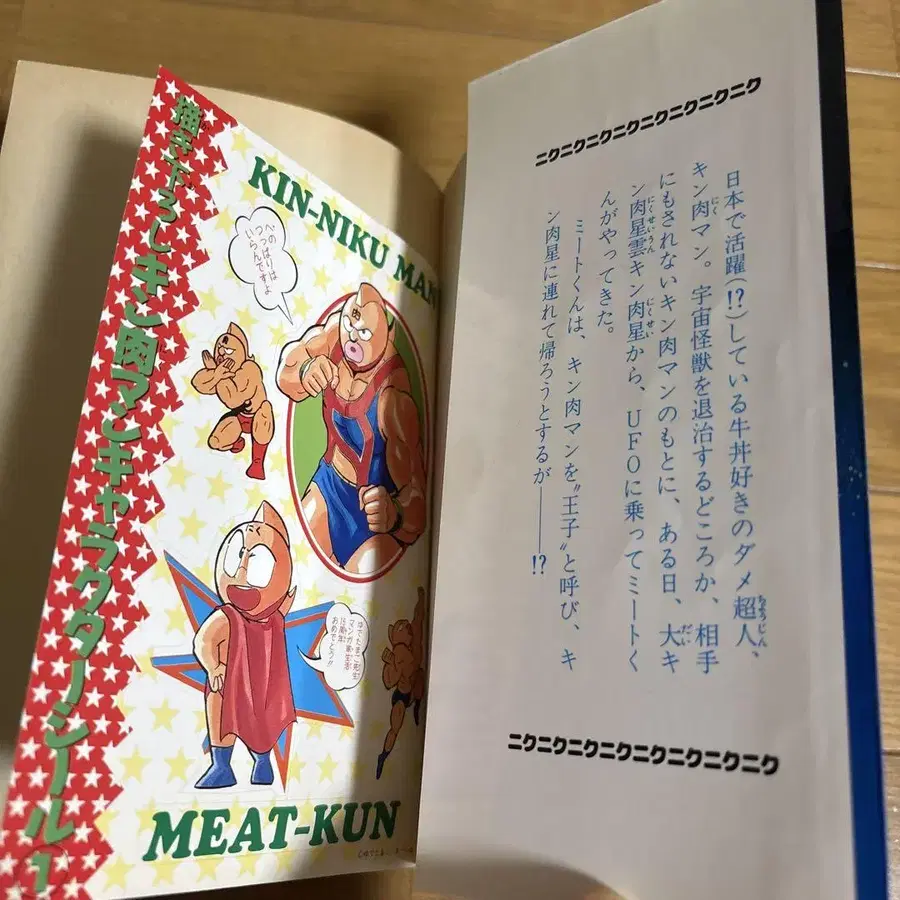 描き下ろしキン肉マンキャラクターシール1
KIN-NIKU MAN
への
つっぱりは
いらんですよ
ゆでたまご先生
マンガ家生活
15周年
おめでとう!!
MEAT-KUN
ニクニクニクニクニクニクニクニク
日本で活躍(!?)している牛丼好きのダメ超人、
キン肉マン。宇宙怪獣を退治するどころか、相手
にもされないキン肉マンのもとに、ある日、大キ
ン肉星雲キン肉星から、UFOに乗ってミートく
んがやってきた。
ミートくんは、キン肉マンを〝王子〟と呼び、キ
ン肉星に連れて帰ろうとするが――!?
ニクニクニクニクニクニクニクニク